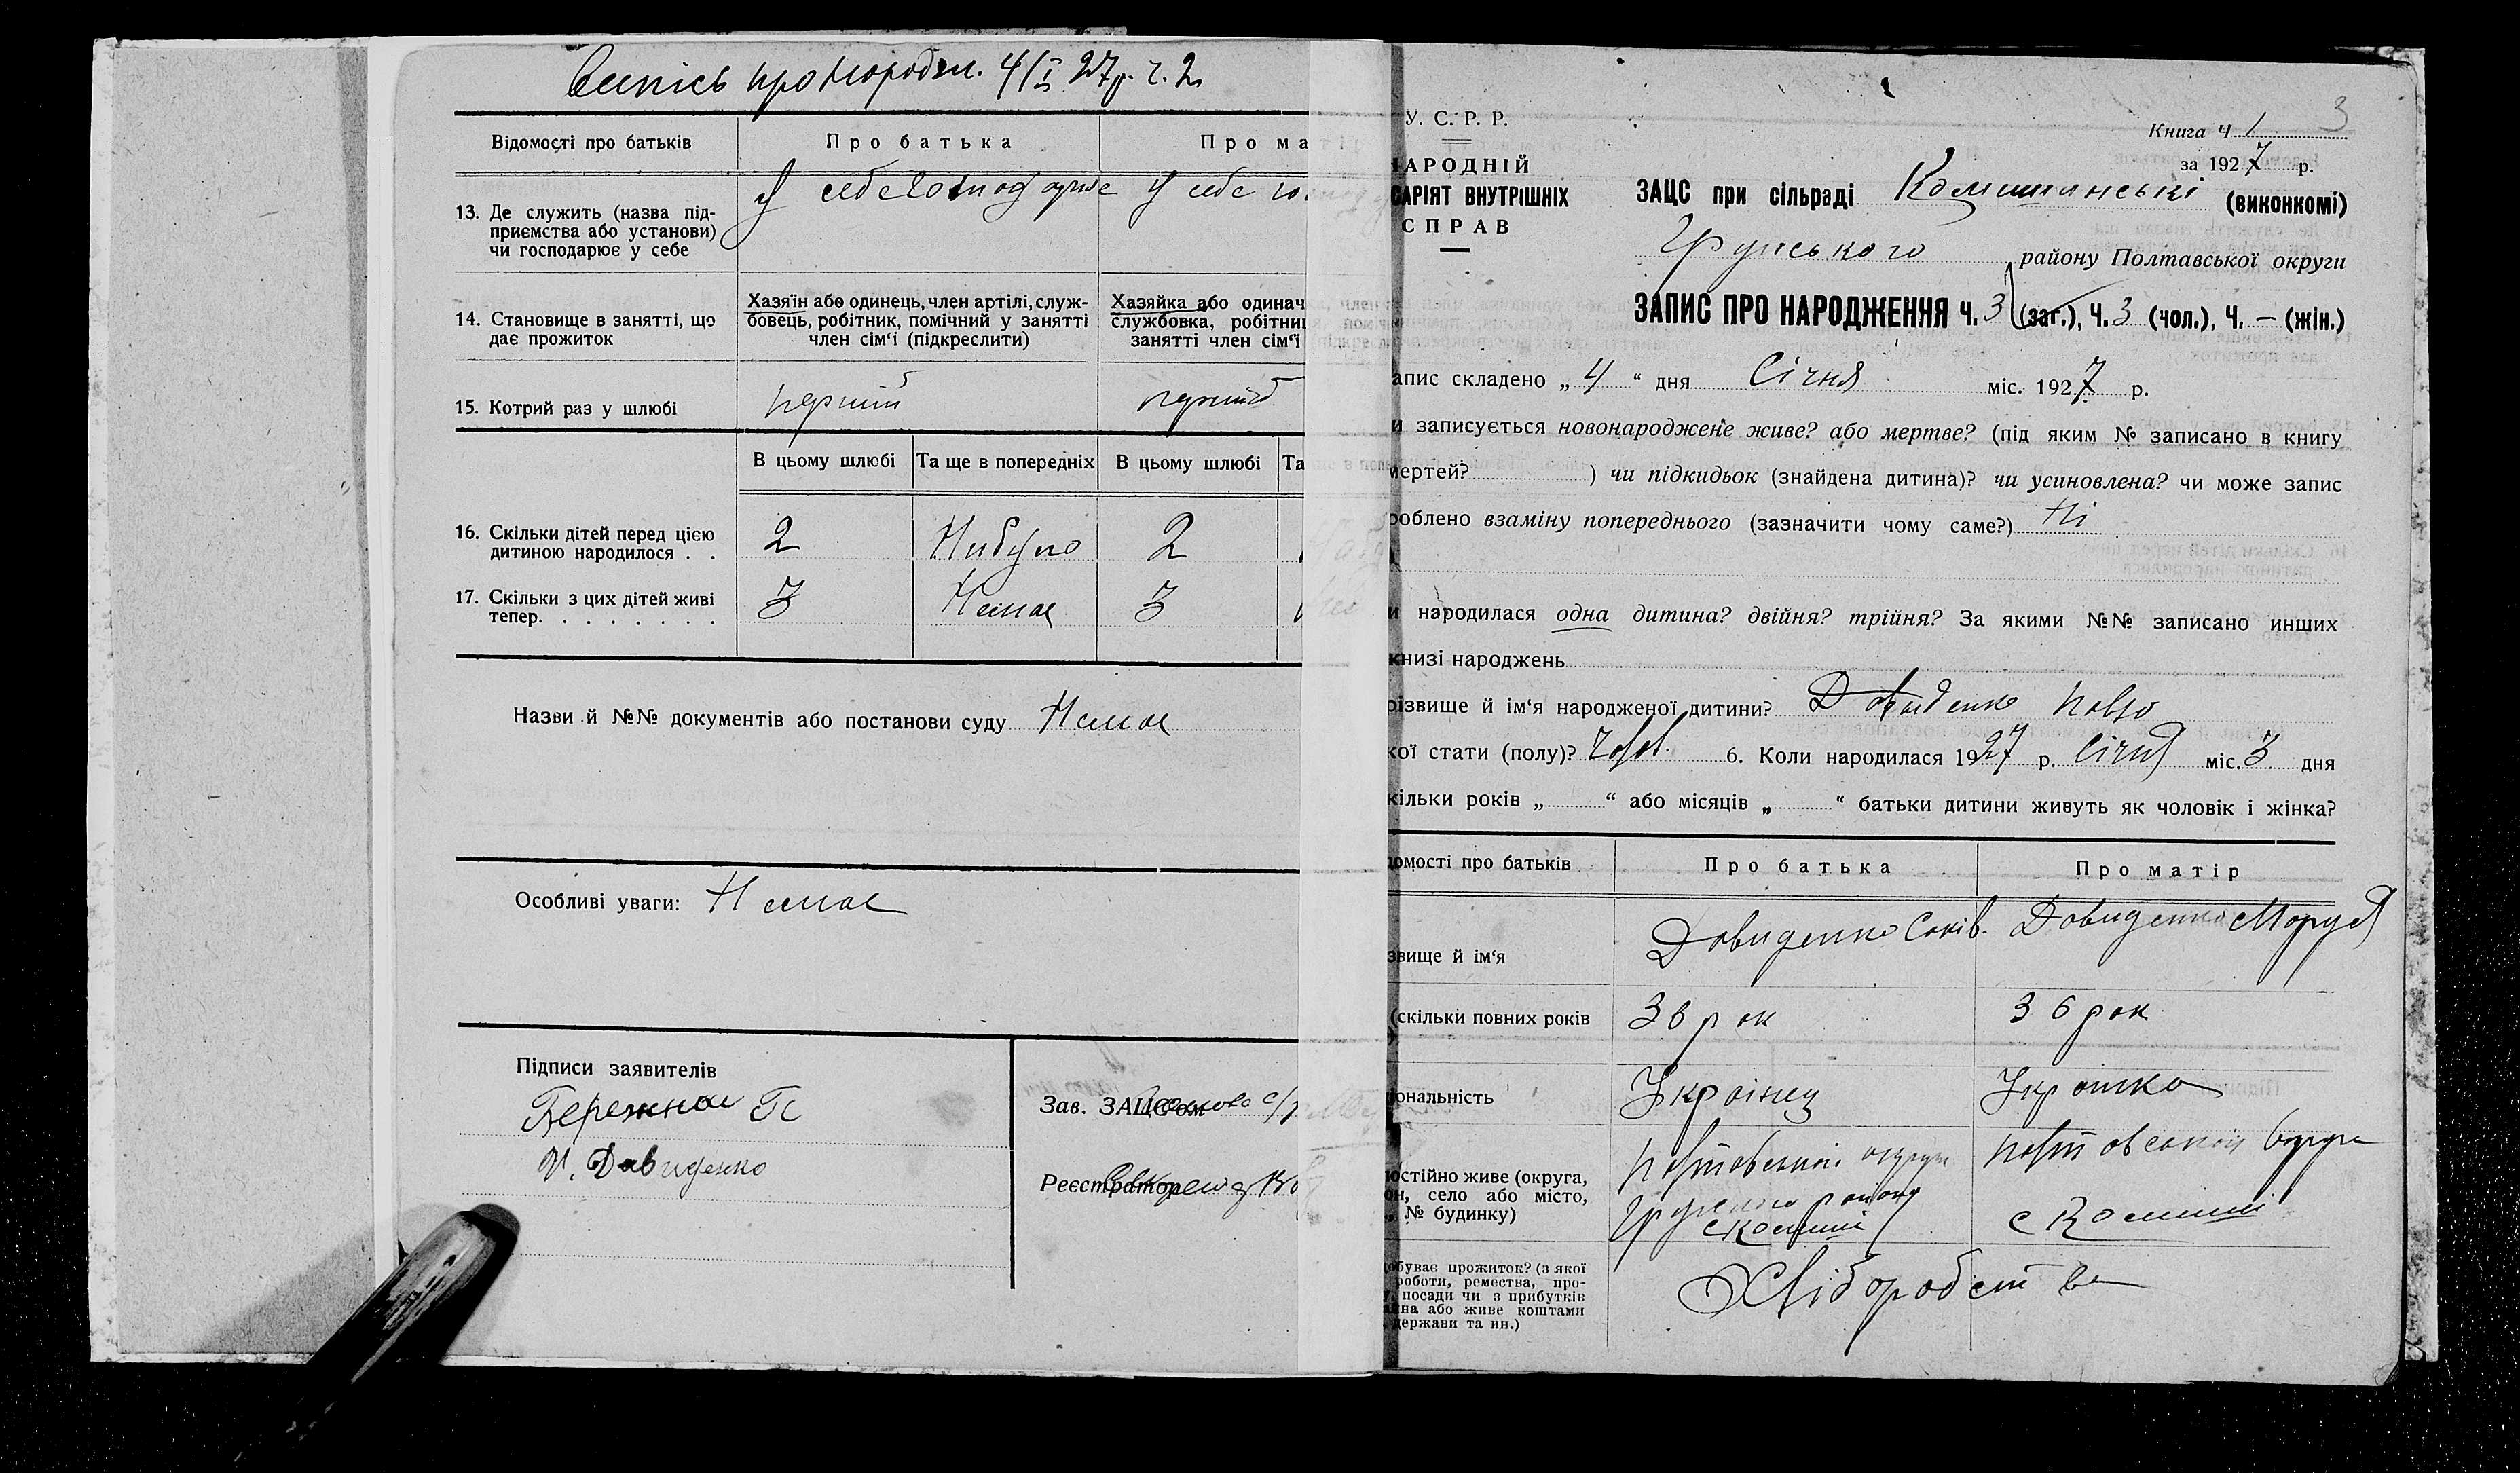 Випись про народж. 4/I 27р. ч. 2
Відомості про батьків
Про батька
Про ма
13. Де служить (назва під-
приємства або установи)
чи господарює у себе
У себе господарює
У себе го
14. Становище в занятті, що
дає прожиток
Хазяїн або одинець, член артілі, служ-
бовець, робітник, помічний у занятті
член сім'ї (підкреслити)
Хазяйка або одинач
службовка, робітни
занятті член сім'ї
15. Котрий раз у шлюбі
перший
перший
В цьому шлюбі
Та ще в попередніх
В цьому шлюбі
Та
16. Скільки дітей перед цією
дитиною народилося . .
2
Небуло
2
17. Скільки з цих дітей живі
тепер. . . . . . . .
3
Немає
3
Назви й №№ документів або постанови суду Немає
Особливі уваги: Немає
Підписи заявителів
Бережна
Давиденко
Зав. ЗАЦСом
Реєстратор
У. С. Р. Р.
НАРОДНІЙ
САРІЯТ ВНУТРІШНІХ
СПРАВ
3
Книга Ч 1
за 1927 р.
ЗАЦС при сільраді Комишанські (виконкомі)
Грунського району Полтавської округи
ЗАПИС ПРО НАРОДЖЕННЯ Ч. 3 (заг.), Ч. 3 (чол.), Ч. — (жін.)
апис складено „ 4 " дня Січня міс. 1927 р.
и записується новонароджене живе? або мертве? (під яким № записано в книгу
мертей? ) чи підкидьок (знайдена дитина)? чи усиновлена? чи може запис
роблено взаміну попереднього (зазначити чому саме?) Ні
и народилася одна дитина? двійня? трійня? За якими №№ записано инших
книзі народжень
різвище й ім'я народженої дитини? Давиденко Павло
кої стати (полу)? Чол. 6. Коли народилася 1927 р. Січня міс. 3 дня
кільки років „ " або місяців „ " батьки дитини живуть як чоловік і жінка?
домості про батьків
Про батька
Про матір
звище й ім'я
Давиденко Яків.
Давиденко Маруся
(скільки повних років
36 рок
36 рок
іональність
Українец
Українка
постійно живе (округа,
он, село або місто,
№ будинку)
Полтавської округи
Грунського району
с Комиші
Полтавської округи
с Комиші
обуває прожиток? (з якої
роботи, ремества, про-
посади чи з прибутків
йна або живе коштами
держави та ин.)
Хліборобство